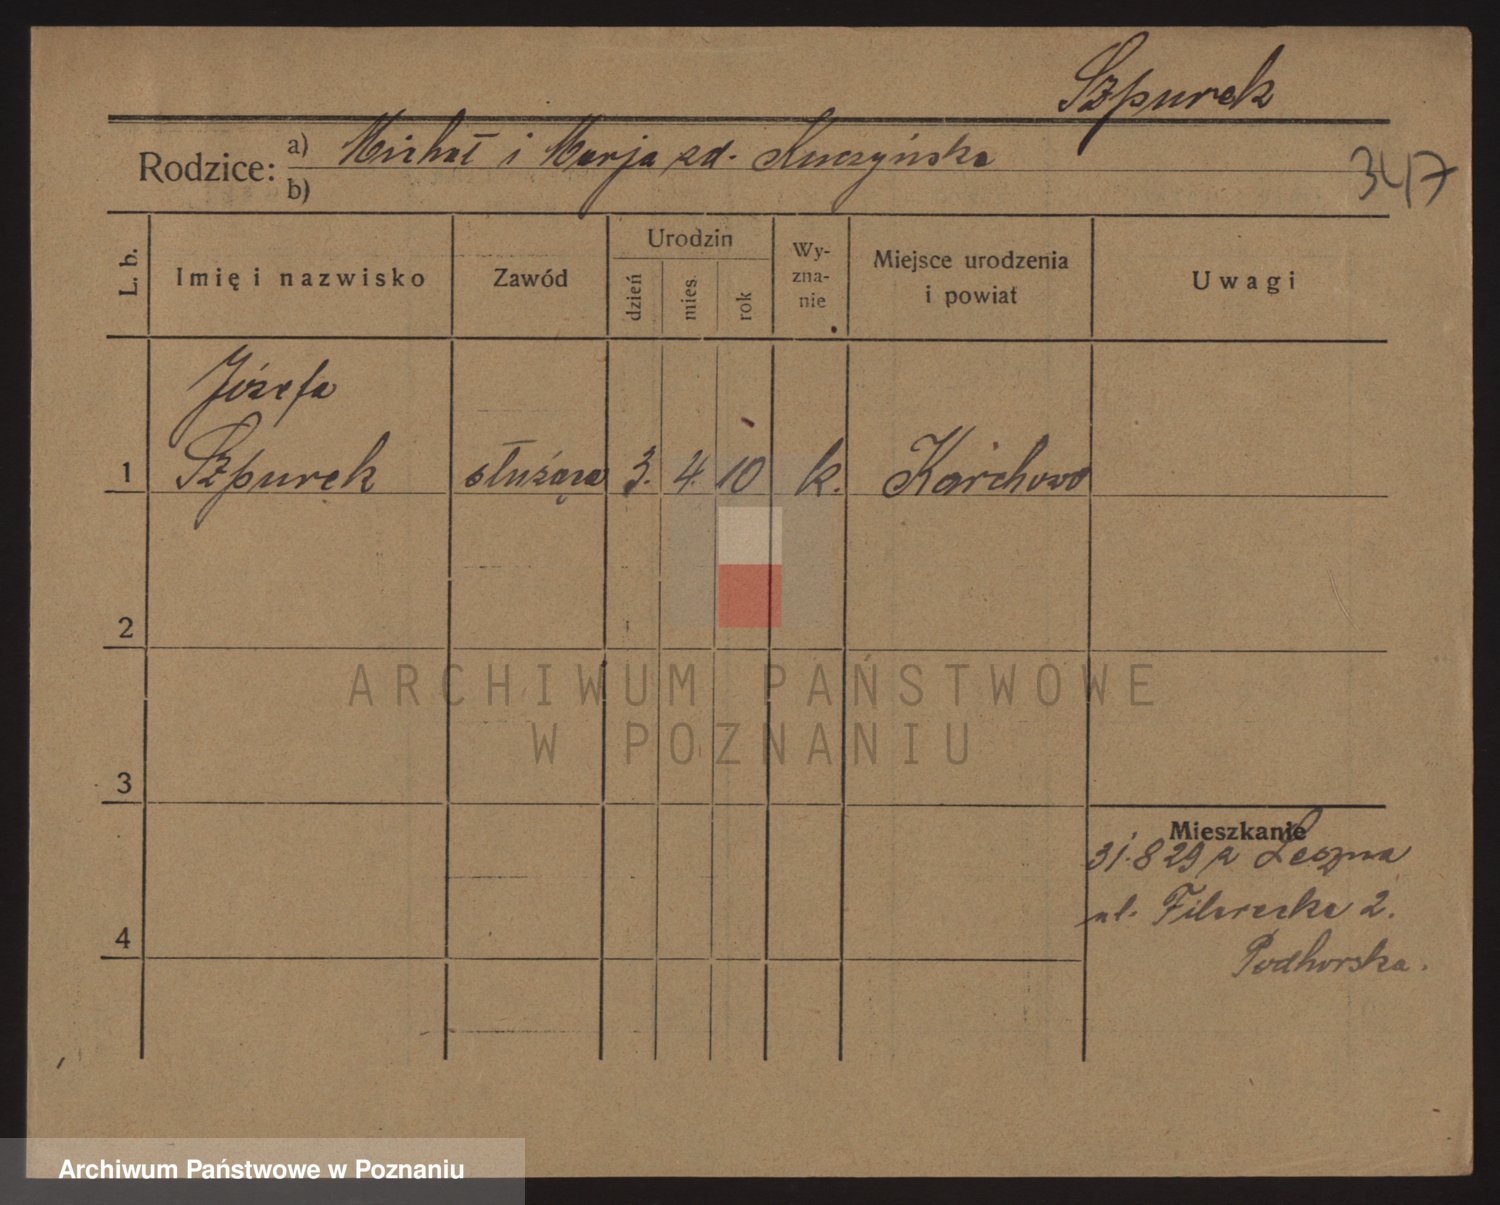 Szpurek
Rodzice: a) Michał i Marja zd. Kuczyńska
b)
347
L. b.
Imię i nazwisko
Zawód
Urodzin
dzień
mies.
rok
Wy-
zna-
nie
Miejsce urodzenia
i powiat
Uwagi
Józefa
1 Szpurek służąca 3. 4. 10 k. Karchowo
2
ARCHIWUM PAŃSTWOWE
W POZNANIU
3
Mieszkanie
31.8 29 z Leszna
ul. Filarecka 2.
Podhorska.
4
Archiwum Państwowe w Poznaniu